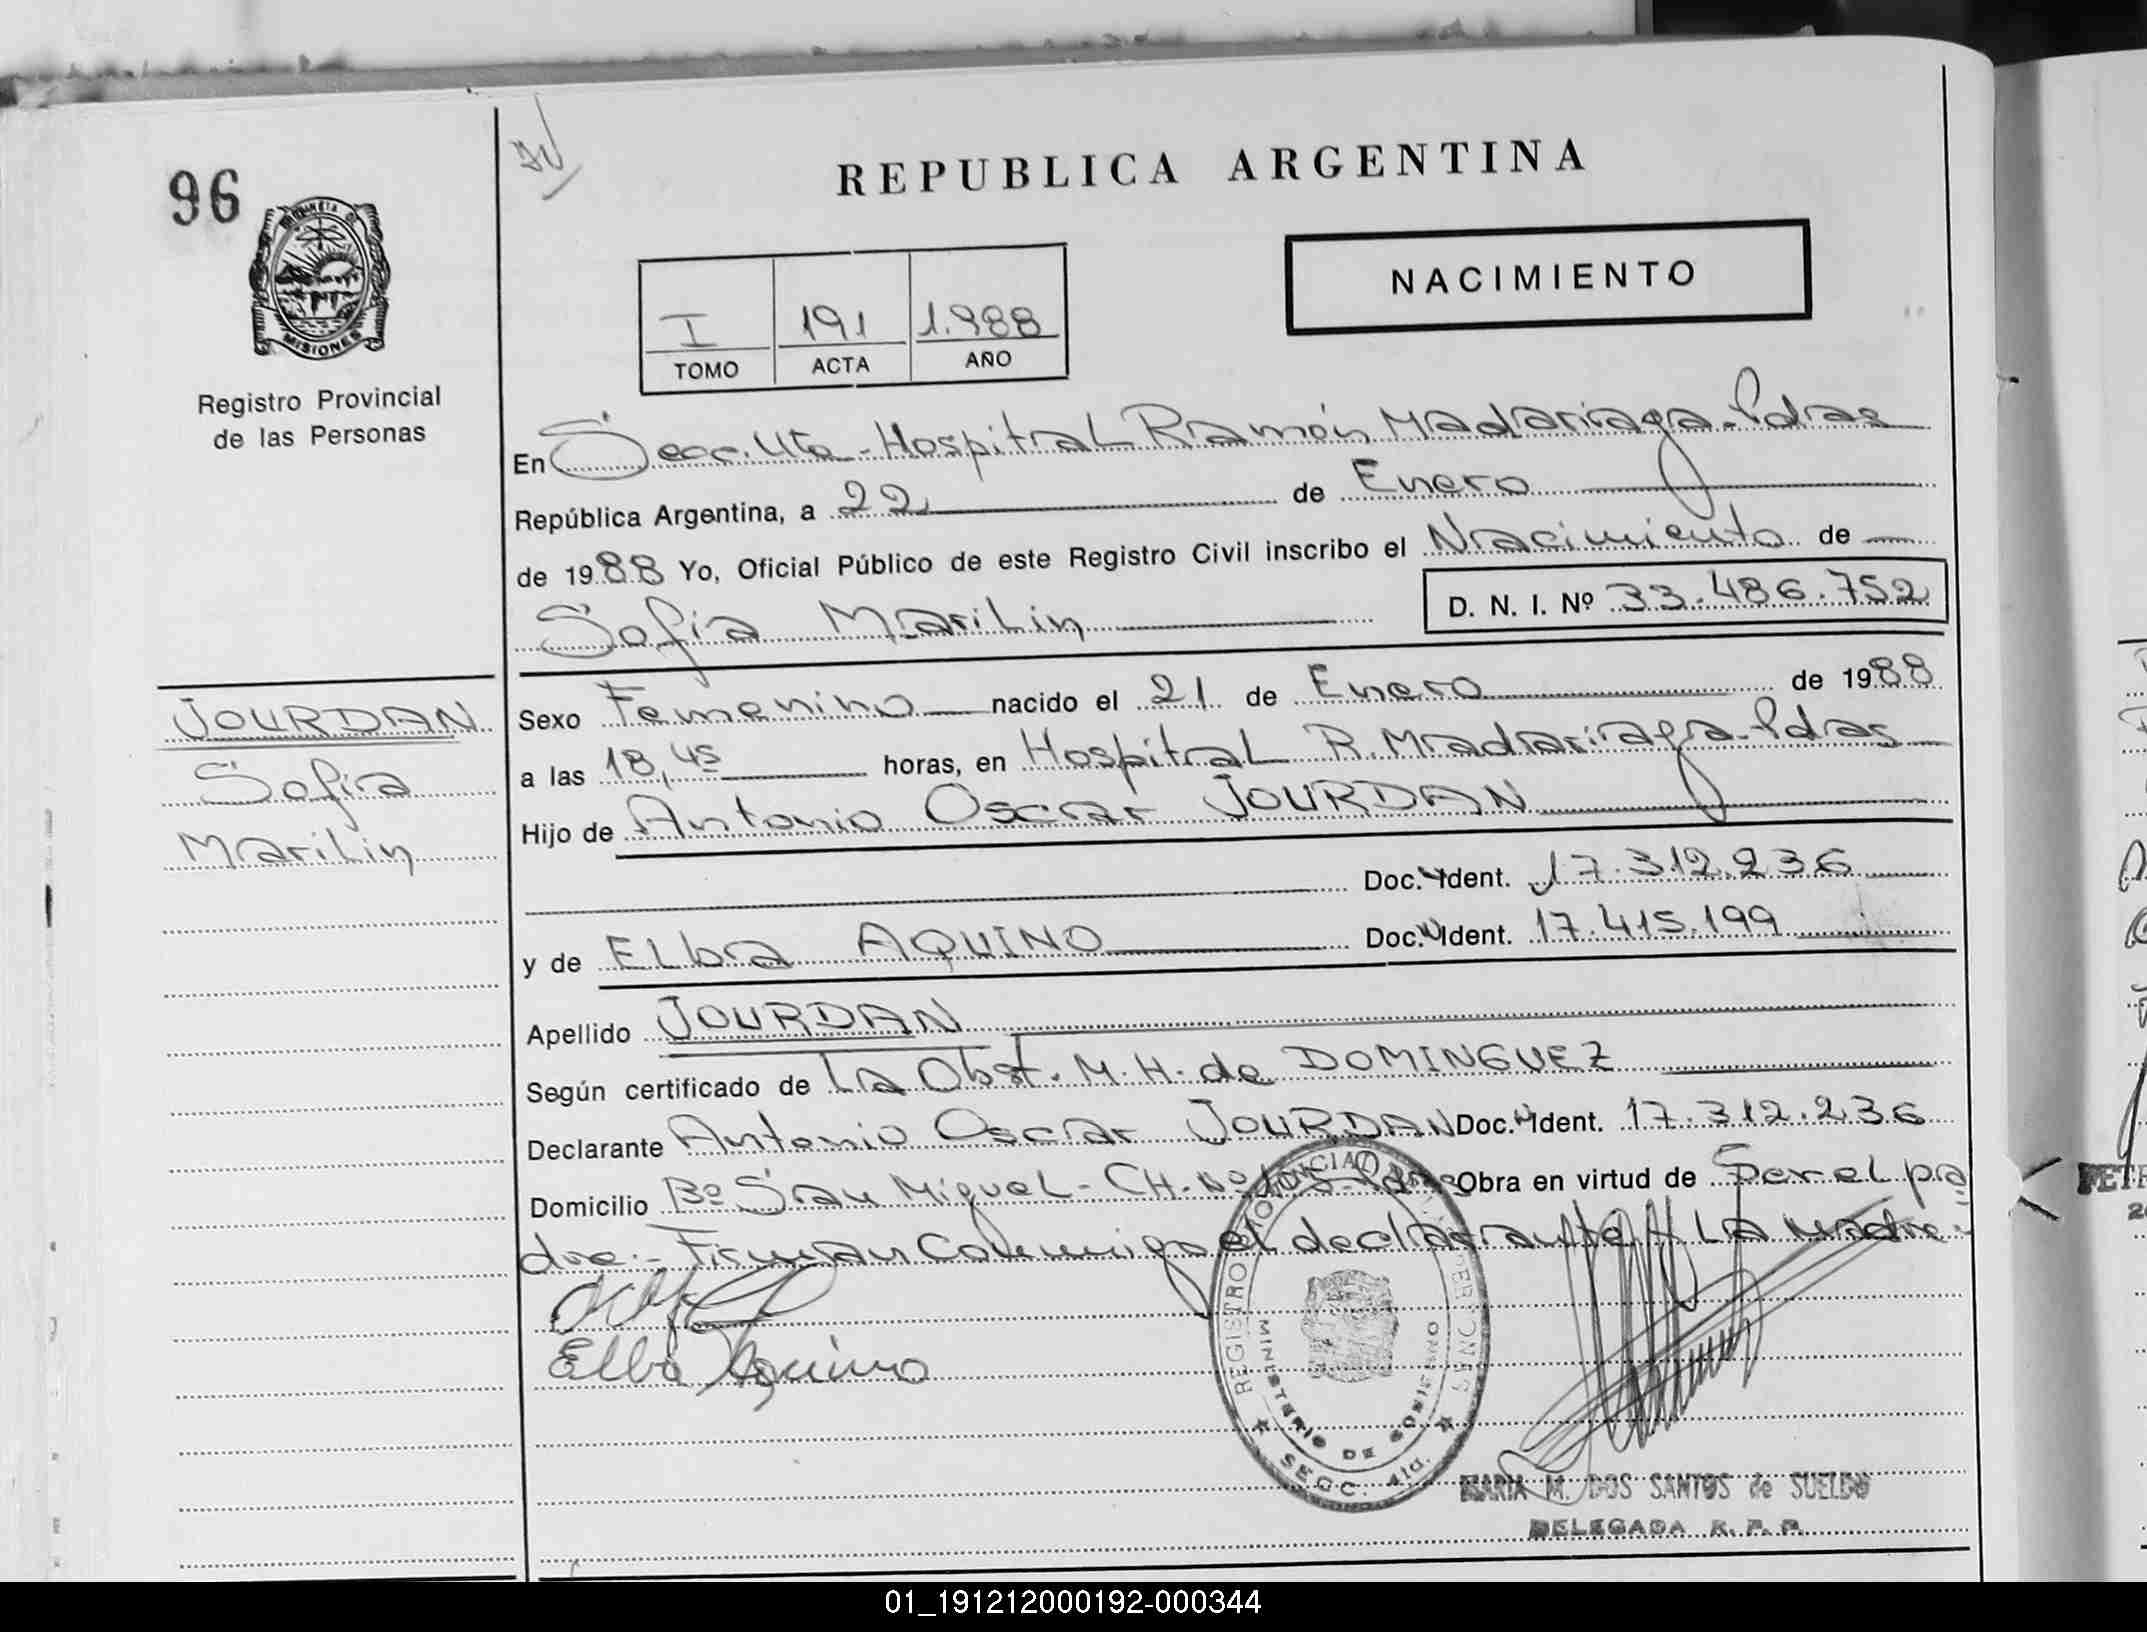 96
REPUBLICA ARGENTINA
PROVINCIA DE
MISIONES
Registro Provincial
de las Personas
NACIMIENTO
I 191 1.988
TOMO ACTA AÑO
En Secc. 4ta - Hospital Ramón Madariaga - Pdas
República Argentina, a 22 de Enero
de 1988 Yo, Oficial Público de este Registro Civil inscribo el Nacimiento de
Sofia Marilin D. N. I. Nº 33.486.752
JOURDAN
Sofia
Marilin
Sexo Femenino nacido el 21 de Enero de 1988
a las 18,45 horas, en Hospital R. Madariaga - Pdas
Hijo de Antonio Oscar JOURDAN
Doc. Ident. 17.312.236
y de Elba AQUINO Doc. Ident. 17.415.199
Apellido JOURDAN
Según certificado de La Obst. M. H. de DOMINGUEZ
Declarante Antonio Oscar JOURDAN Doc. Ident. 17.312.236
Domicilio Bº San Miguel - CH. Nº 105 - Pdas Obra en virtud de Ser el pa
dre.- Firman conmigo el declarante y La madre.-
Elba Aquino
REGISTRO PROVINCIAL DE LAS PERSONAS
MINISTERIO DE GOBIERNO
SECC. 4ta.
MARIA M. DOS SANTOS de SUELDO
DELEGADA R. P. P.
01_191212000192-000344